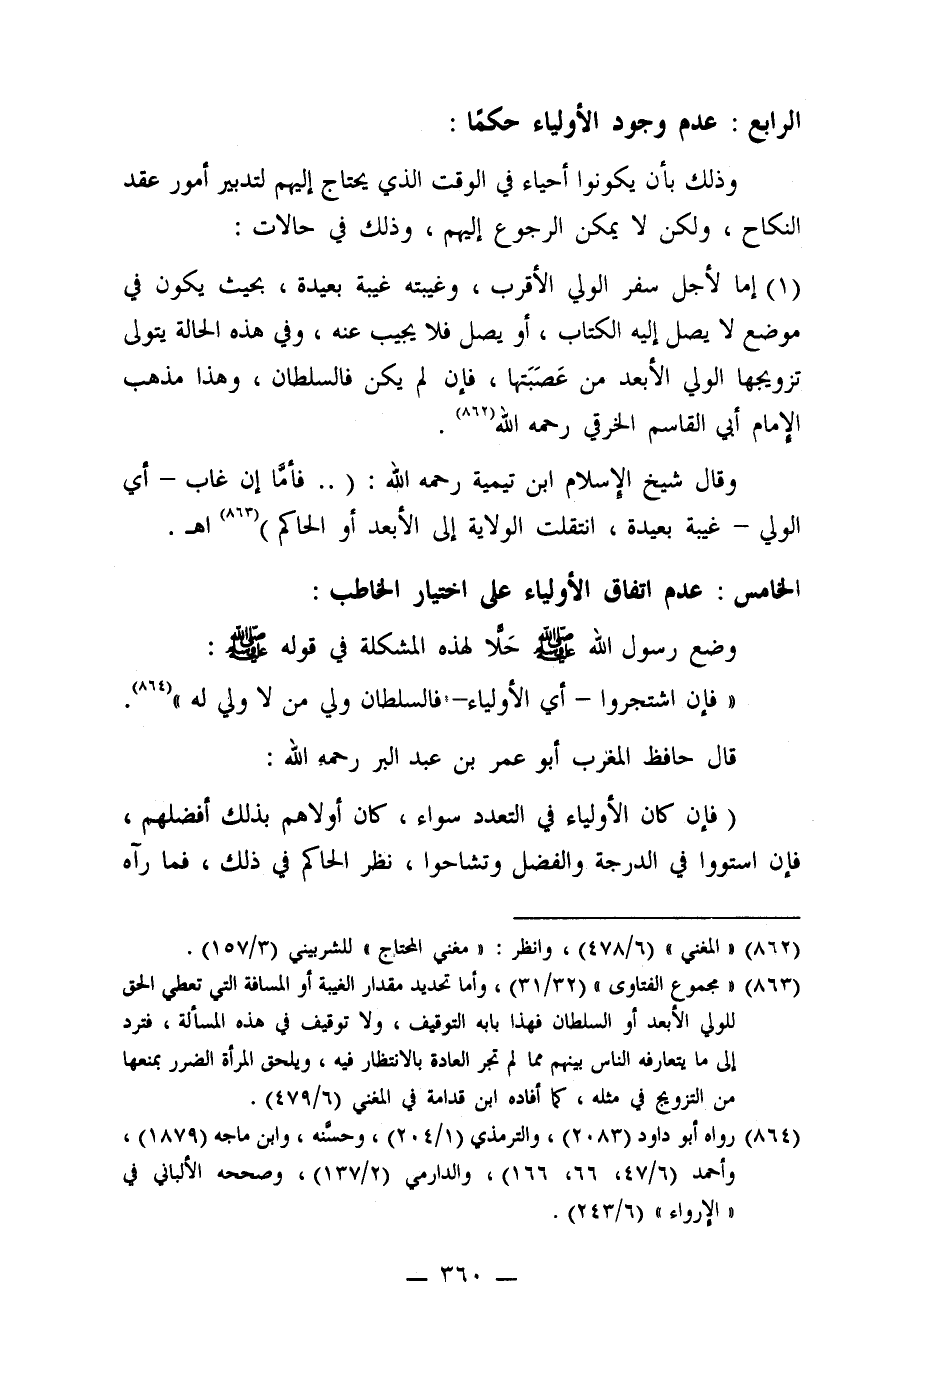 الرابع : عدم وجود الأولياء حكمًا :
وذلك بأن يكونوا أحياء في الوقت الذي يحتاج إليهم لتدبير أمور عقد
النكاح ، ولكن لا يمكن الرجوع إليهم ، وذلك في حالات :
(١) إما لأجل سفر الولي الأقرب ، وغيبته غيبة بعيدة ، بحيث يكون في
موضع لا يصل إليه الكتاب ، أو يصل فلا يجيب عنه ، وفي هذه الحالة يتولى
تزويجها الولي الأبعد من عَصَبَتها ، فإن لم يكن فالسلطان ، وهذا مذهب
الإمام أبي القاسم الخرقي رحمه الله(٨٦٢) .
وقال شيخ الإسلام ابن تيمية رحمه الله : ( .. فأمَّا إن غاب – أي
الولي – غيبة بعيدة ، انتقلت الولاية إلى الأبعد أو الحاكم )(٨٦٣) اهـ .
الخامس : عدم اتفاق الأولياء على اختيار الخاطب :
وضع رسول الله ﷺ حَلًّا لهذه المشكلة في قوله ﷺ :
« فإن اشتجروا – أي الأولياء– فالسلطان ولي من لا ولي له »(٨٦٤).
قال حافظ المغرب أبو عمر بن عبد البر رحمه الله :
( فإن كان الأولياء في التعدد سواء ، كان أولاهم بذلك أفضلهم ،
فإن استووا في الدرجة والفضل وتشاحوا ، نظر الحاكم في ذلك ، فما رآه
(٨٦٢) « المغني » (٤٧٨/٦) ، وانظر : « مغني المحتاج » للشربيني (١٥٧/٣) .
(٨٦٣) « مجموع الفتاوى » (٣١/٣٢) ، وأما تحديد مقدار الغيبة أو المسافة التي تعطي الحق
للولي الأبعد أو السلطان فهذا بابه التوقيف ، ولا توقيف في هذه المسألة ، فترد
إلى ما يتعارفه الناس بينهم مما لم تجر العادة بالانتظار فيه ، ويلحق المرأة الضرر بمنعها
من التزويج في مثله ، كما أفاده ابن قدامة في المغني (٤٧٩/٦) .
(٨٦٤) رواه أبو داود (٢٠٨٣) ، والترمذي (٢٠٤/١) ، وحسَّنه ، وابن ماجه (١٨٧٩) ،
وأحمد (٤٧/٦، ٦٦، ١٦٦) ، والدارمي (١٣٧/٢) ، وصححه الألباني في
« الإرواء » (٢٤٣/٦) .
— ٣٦٠ —